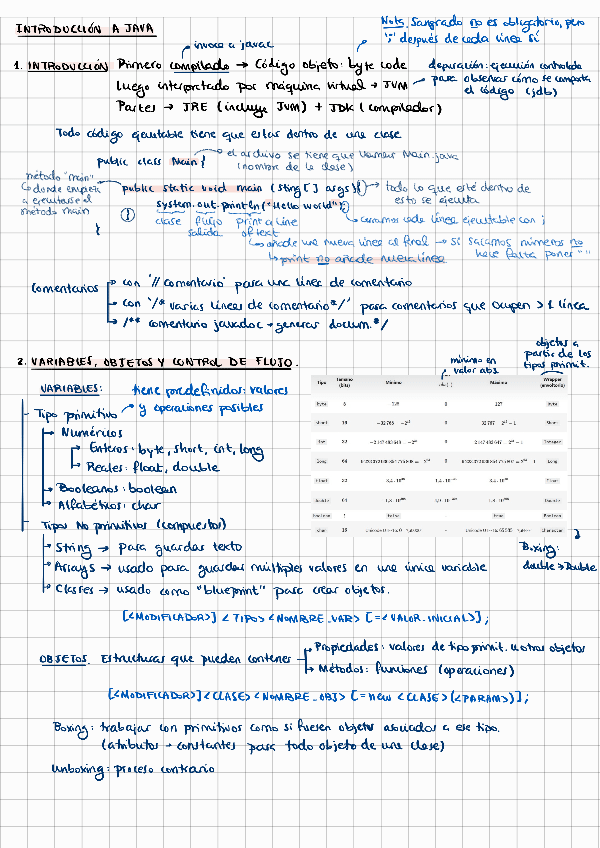 INTRODUCCIÓN A JAVA
Nota: Sangrado no es obligatorio, pero
";" después de cada línea sí
invoca a javac
1. INTRODUCCIÓN Primero compilado → código objeto: byte code
Luego interpretado por máquina virtual → JVM
Partes → JRE (incluye JVM) + JDK (compilador)
depuración: ejecución controlada
para observar cómo se comporta
el código (jdb)
Todo código ejecutable tiene que estar dentro de una clase
public class Main {
el archivo se tiene que llamar Main.java
(nombre de la clase)
método "main"
donde empieza
a ejecutarse el
método main
public static void main (String[] args) {} → todo lo que esté dentro de
esto se ejecuta
System.out.println("Hello world"); → cerramos cada línea ejecutable con ;
clase flujo print a line
salida of text
}
añade una nueva línea al final → si sacamos números no
hace falta poner " "
print no añade nueva línea
Comentarios
con '// comentario' para una línea de comentario
con '/* varias líneas de comentario */' para comentarios que ocupen > 1 línea
/** comentario javadoc → generar docum. */
2. VARIABLES, OBJETOS Y CONTROL DE FLUJO.
mínimo en
valor abs.
objetos a
partir de los
tipos primit.
VARIABLES: tiene predefinidos: valores
y operaciones posibles
Tipo primitivo
Numéricos
Enteros: byte, short, int, long
Reales: float, double
Booleanos: boolean
Alfabéticos: char
Tipo Tamaño (bits) Mínimo Máximo Wrapper (envoltorio)
byte 8 0 127 Byte
short 16 0 Short
int 32 0 Integer
long 64 0 Long
float 32 Float
double 64 Double
boolean 1 false true Boolean
char 16 Character
Boxing:
double → Double
Tipos No primitivos (compuestos)
String → para guardar texto
Arrays → usado para guardar múltiples valores en una única variable
Classes → usado como "blueprint" para crear objetos.
[<MODIFICADOR>] <TIPO> <NOMBRE_VAR> [=<VALOR_INICIAL>];
OBJETOS. Estructuras que pueden contener
Propiedades: valores de tipo primit. u otros objetos
Métodos: funciones (operaciones)
[<MODIFICADOR>] <CLASE> <NOMBRE_OBJ> [= new <CLASE> (<PARAM>)];
Boxing: trabajar con primitivos como si fuesen objetos asociados a ese tipo.
(atributos → constantes para todo objeto de una clase)
Unboxing: proceso contrario